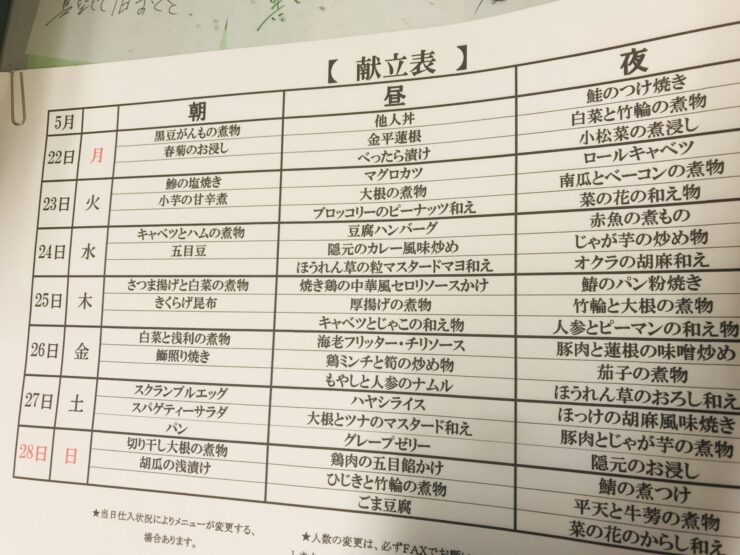 【 献立表 】
5月 朝 昼 夜
22日 月 黒豆がんもの煮物 他人丼 鮭のつけ焼き
春菊のお浸し 金平蓮根 白菜と竹輪の煮物
べったら漬け 小松菜の煮浸し
23日 火 鯵の塩焼き マグロカツ ロールキャベツ
小芋の甘辛煮 大根の煮物 南瓜とベーコンの煮物
ブロッコリーのピーナッツ和え 菜の花の和え物
24日 水 キャベツとハムの煮物 豆腐ハンバーグ 赤魚の煮もの
五目豆 隠元のカレー風味炒め じゃが芋の炒め物
ほうれん草の粒マスタードマヨ和え オクラの胡麻和え
25日 木 さつま揚げと白菜の煮物 焼き鶏の中華風セロリソースかけ 鰆のパン粉焼き
きくらげ昆布 厚揚げの煮物 竹輪と大根の煮物
キャベツとじゃこの和え物 人参とピーマンの和え物
26日 金 白菜と浅利の煮物 海老フリッター・チリソース 豚肉と蓮根の味噌炒め
鰤照り焼き 鶏ミンチと筍の炒め物 茄子の煮物
もやしと人参のナムル ほうれん草のおろし和え
27日 土 スクランブルエッグ ハヤシライス ほっけの胡麻風味焼き
スパゲティーサラダ 大根とツナのマスタード和え 豚肉とじゃが芋の煮物
パン グレープゼリー 隠元のお浸し
28日 日 切り干し大根の煮物 鶏肉の五目餡かけ 鯖の煮つけ
胡瓜の浅漬け ひじきと竹輪の煮物 平天と牛蒡の煮物
ごま豆腐 菜の花のからし和え
★当日仕入状況によりメニューが変更する、
場合あります。
★人数の変更は、必ずFAXでお願い